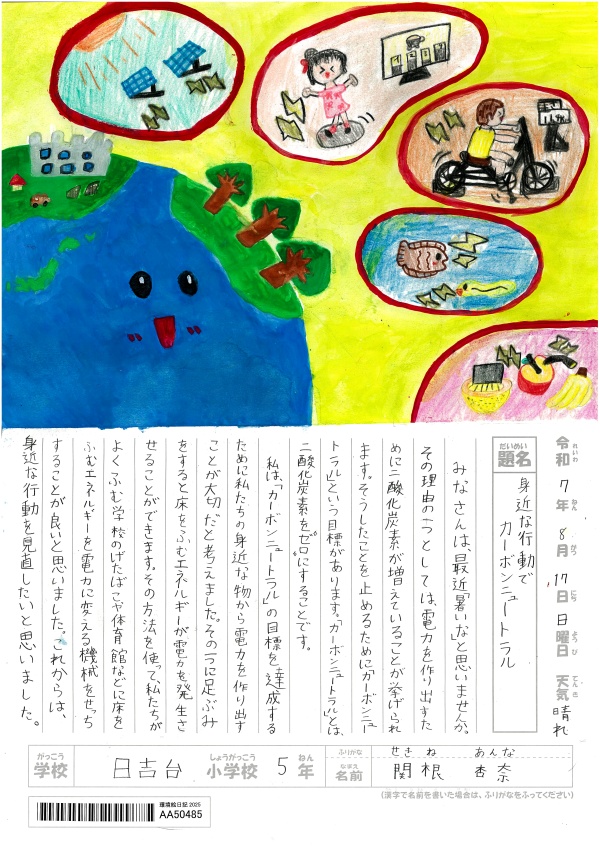 令和7年8月17日日曜日 天気 晴れ
れいわ ねん がつ にち よう び てんき
だいめい
題名
身近な行動で
カーボンニュートラル
みなさんは、最近「暑い」なと思いませんか。
その理由の一つとしては、電力を作り出すた
めに二酸化炭素が増えていることが挙げられ
ます。そうしたことを止めるために「カーボンニュー
トラル」という目標があります。「カーボンニュートラル」とは、
二酸化炭素をゼロにすることです。
私は、「カーボンニュートラル」の目標を達成する
ために私たちの身近な物から電力を作り出す
ことが大切だと考えました。その一つに足ぶみ
をすると床をふむエネルギーが電力を発生さ
せることができます。その方法を使って、私たちが
よくふむ学校のげたばこや体育館などに床を
ふむエネルギーを電力に変える機械をせっち
することが良いと思いました。これからは、
身近な行動を見直したいと思いました。
がっこう
学校
日吉台
しょうがっこう
小学校
5
ねん
年
ふりがな
なまえ
名前
せき ね あんな
関根 杏奈
(漢字で名前を書いた場合は、ふりがなをふってください)
環境絵日記 2025
AA50485